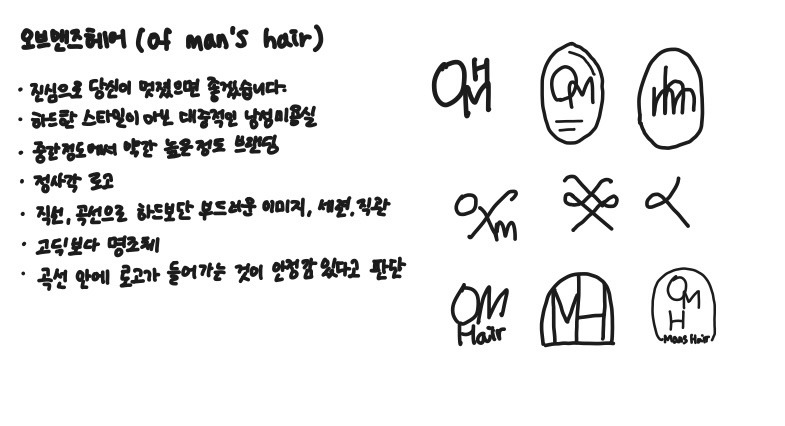 오브맨즈헤어 (Of man's hair)
· 진심으로 당신이 멋졌으면 좋겠습니다.
· 하드한 스타일이 아닌 대중적인 남성미용실
· 중간정도에서 약간 높은정도 브랜딩
· 정사각 로고
· 직선, 곡선으로 하드보단 부드러운 이미지, 세련, 직관
· 고딕보다 명조체
· 곡선 안에 로고가 들어가는 것이 안정감 있다고 판단
OM
H
OM
O/m
OM
Hair
MH
OM
H
Mans Hair